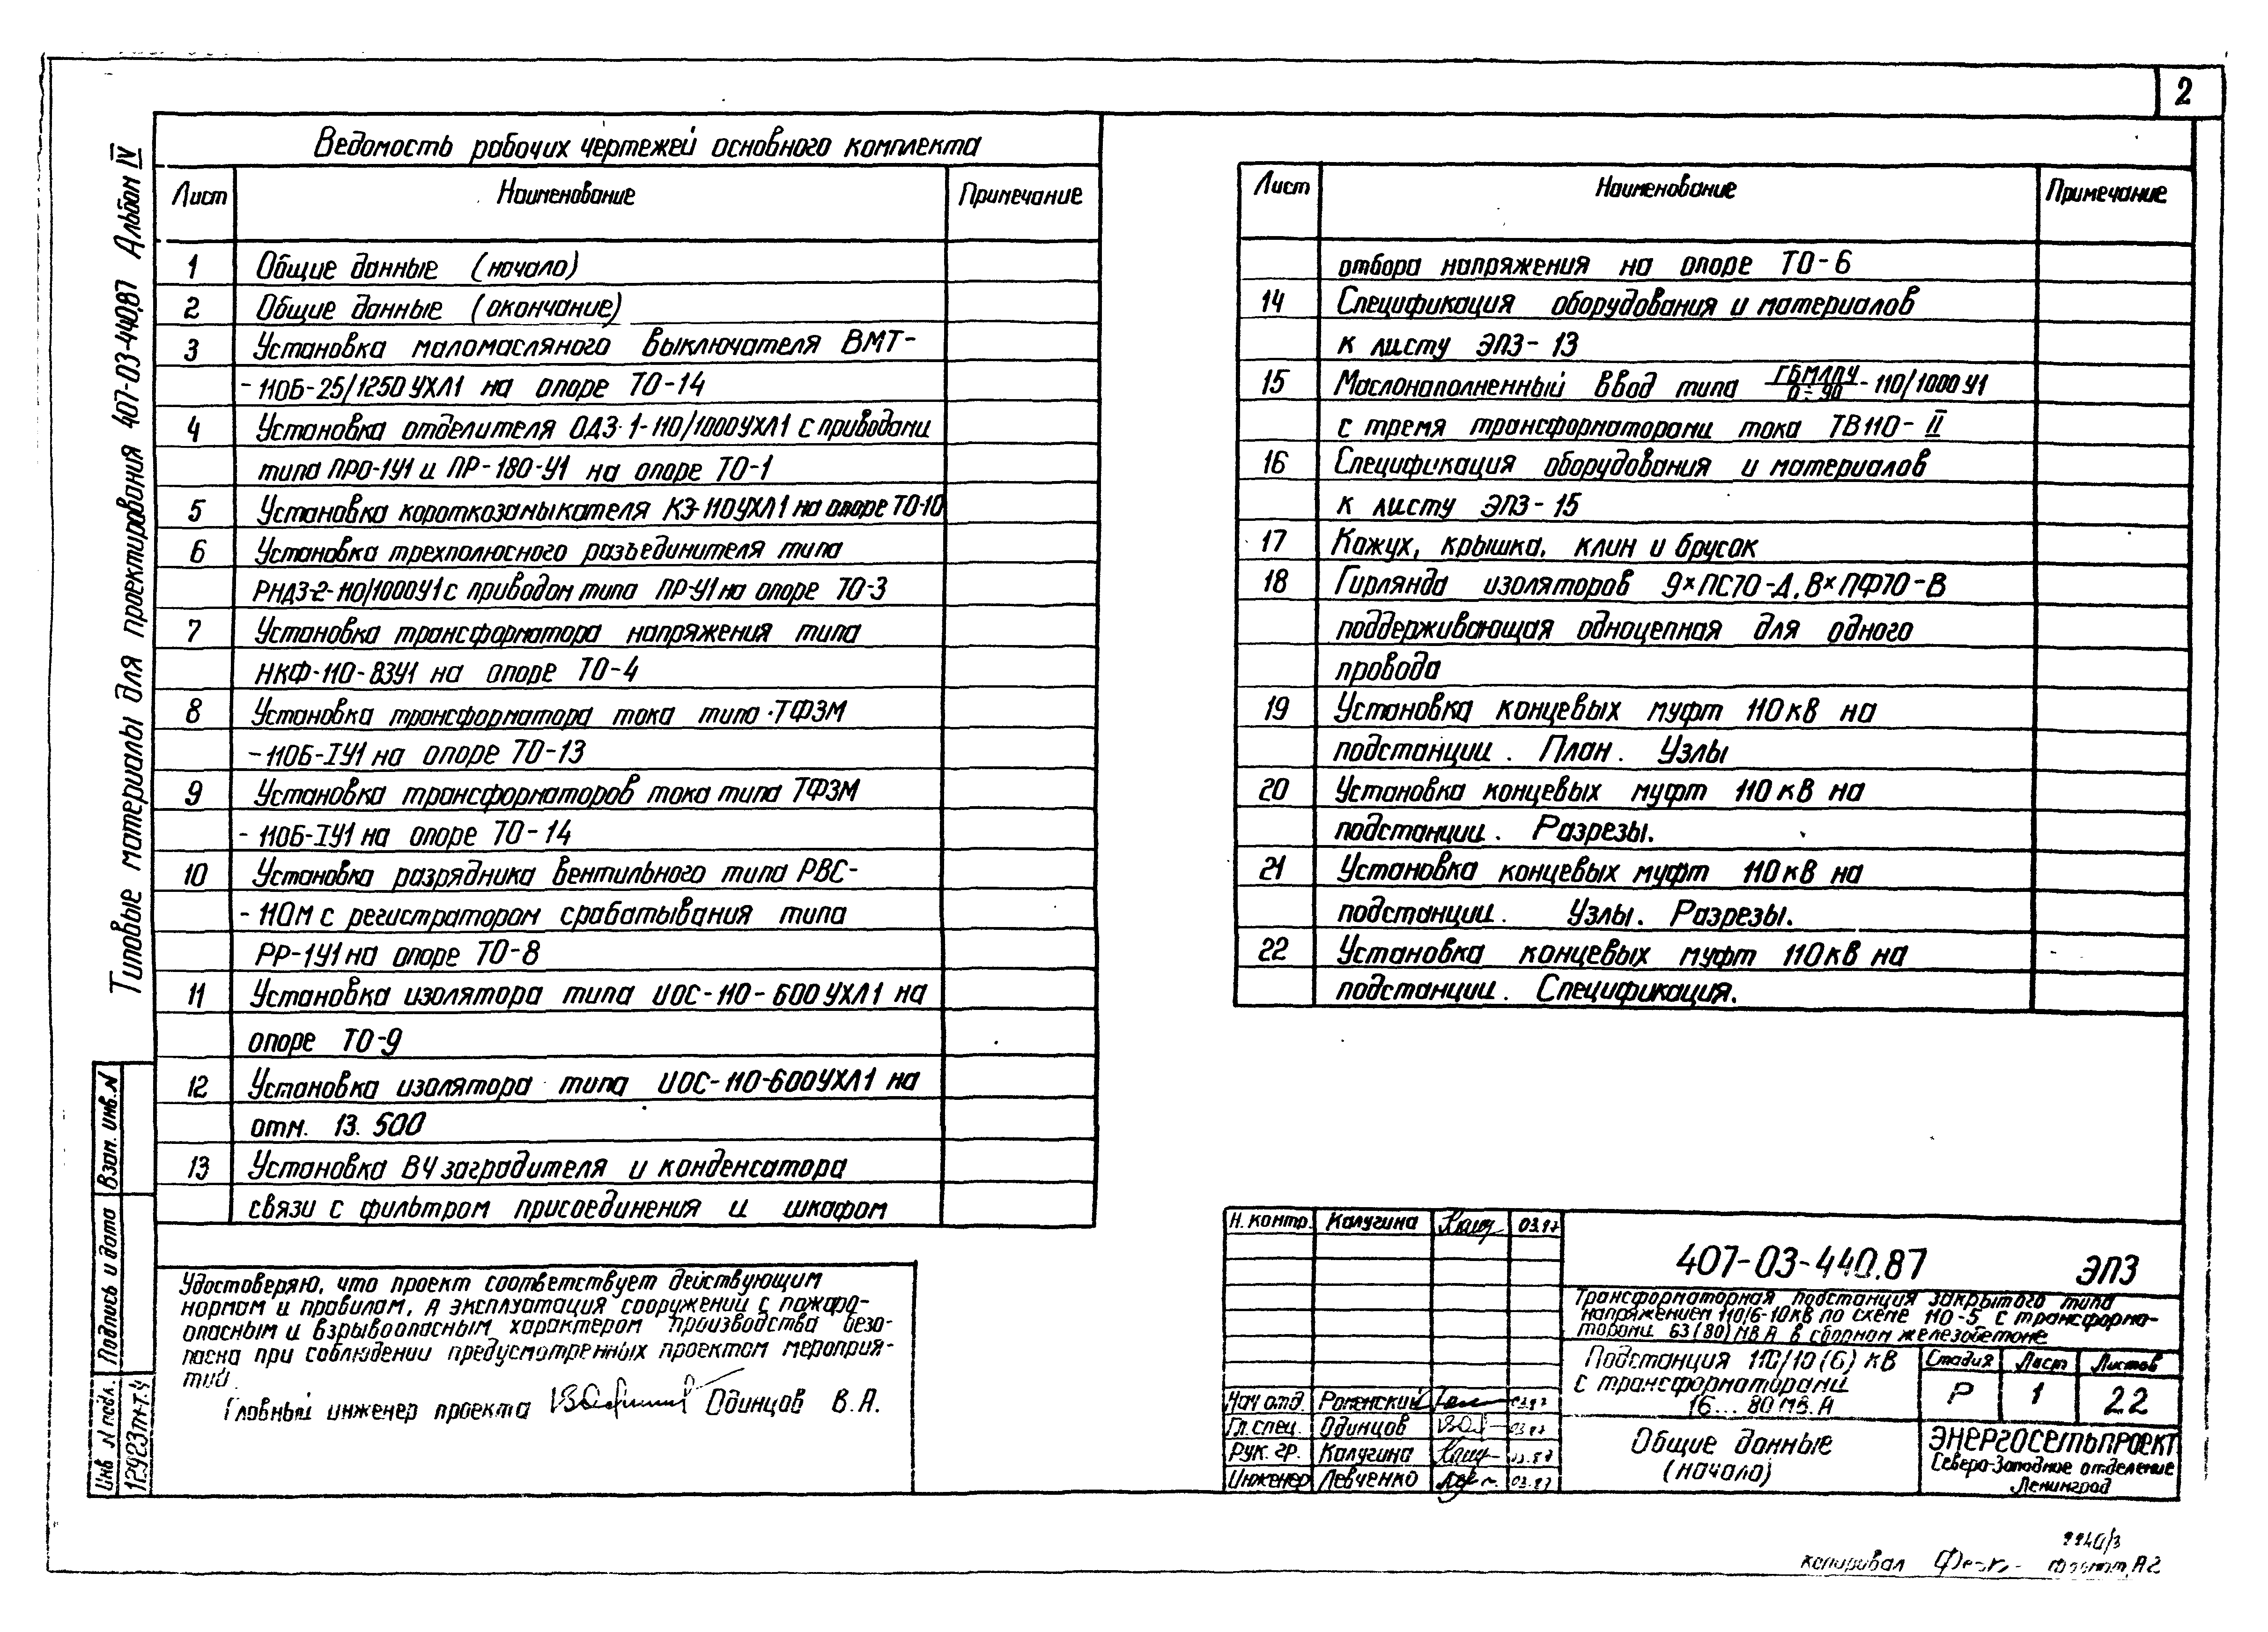 2
Типовые материалы для проектирования 407-03-440.87 Альбом IV
Ведомость рабочих чертежей основного комплекта
Лист Наименование Примечание
1 Общие данные (начало)
2 Общие данные (окончание)
3 Установка маломасляного выключателя ВМТ-
-110Б-25/1250 УХЛ1 на опоре ТО-14
4 Установка отделителя ОДЗ-1-110/1000УХЛ1 с приводами
типа ПРО-1У1 и ПР-180-У1 на опоре ТО-1
5 Установка короткозамыкателя КЗ-110УХЛ1 на опоре ТО-10
6 Установка трехполюсного разъединителя типа
РНДЗ-2-110/1000У1 с приводом типа ПР-У1 на опоре ТО-3
7 Установка трансформатора напряжения типа
НКФ-110-83У1 на опоре ТО-4
8 Установка трансформатора тока типа ТФЗМ
-110Б-IУ1 на опоре ТО-13
9 Установка трансформаторов тока типа ТФЗМ
-110Б-IУ1 на опоре ТО-14
10 Установка разрядника вентильного типа РВС-
-110М с регистратором срабатывания типа
РР-1У1 на опоре ТО-8
11 Установка изолятора типа ИОС-110-600 УХЛ1 на
опоре ТО-9
12 Установка изолятора типа ИОС-110-600УХЛ1 на
отм. 13.500
13 Установка ВЧ заградителя и конденсатора
связи с фильтром присоединения и шкафом
Лист Наименование Примечание
отбора напряжения на опоре ТО-6
14 Спецификация оборудования и материалов
к листу ЭП3-13
15 Маслонаполненный ввод типа ГБМЛПУ/0÷90-110/1000 У1
с тремя трансформаторами тока ТВ110-II
16 Спецификация оборудования и материалов
к листу ЭП3-15
17 Кожух, крышка, клин и брусок
18 Гирлянда изоляторов 9×ПС70-Д, 8×ПФ70-В
поддерживающая одноцепная для одного
провода
19 Установка концевых муфт 110 кВ на
подстанции. План. Узлы
20 Установка концевых муфт 110 кВ на
подстанции. Разрезы.
21 Установка концевых муфт 110 кВ на
подстанции. Узлы. Разрезы.
22 Установка концевых муфт 110 кВ на
подстанции. Спецификация.
Взам. инв. N
Подпись и дата
Инв N подл.
12923тм-т.4
Удостоверяю, что проект соответствует действующим
нормам и правилам, а эксплуатация сооружений с пожаро-
опасным и взрывоопасным характером производства безо-
пасна при соблюдении предусмотренных проектом мероприя-
тий.
Главный инженер проекта Одинцов В.А.
Н. контр. Калугина 03.87
Нач отд. Роменский 03.87
Гл. спец. Одинцов 03.87
Рук. гр. Калугина 03.87
Инженер Левченко 03.87
407-03-440.87 ЭП3
Трансформаторная подстанция закрытого типа
напряжением 110/6-10кВ по схеме 110-5 с трансформа-
торами 63(80)МВА в сборном железобетоне
Подстанция 110/10(6) кВ
с трансформаторами
16...80 МВ.А
Стадия Лист Листов
Р 1 22
Общие данные
(начало)
ЭНЕРГОСЕТЬПРОЕКТ
Северо-Западное отделение
Ленинград
копировал формат А2